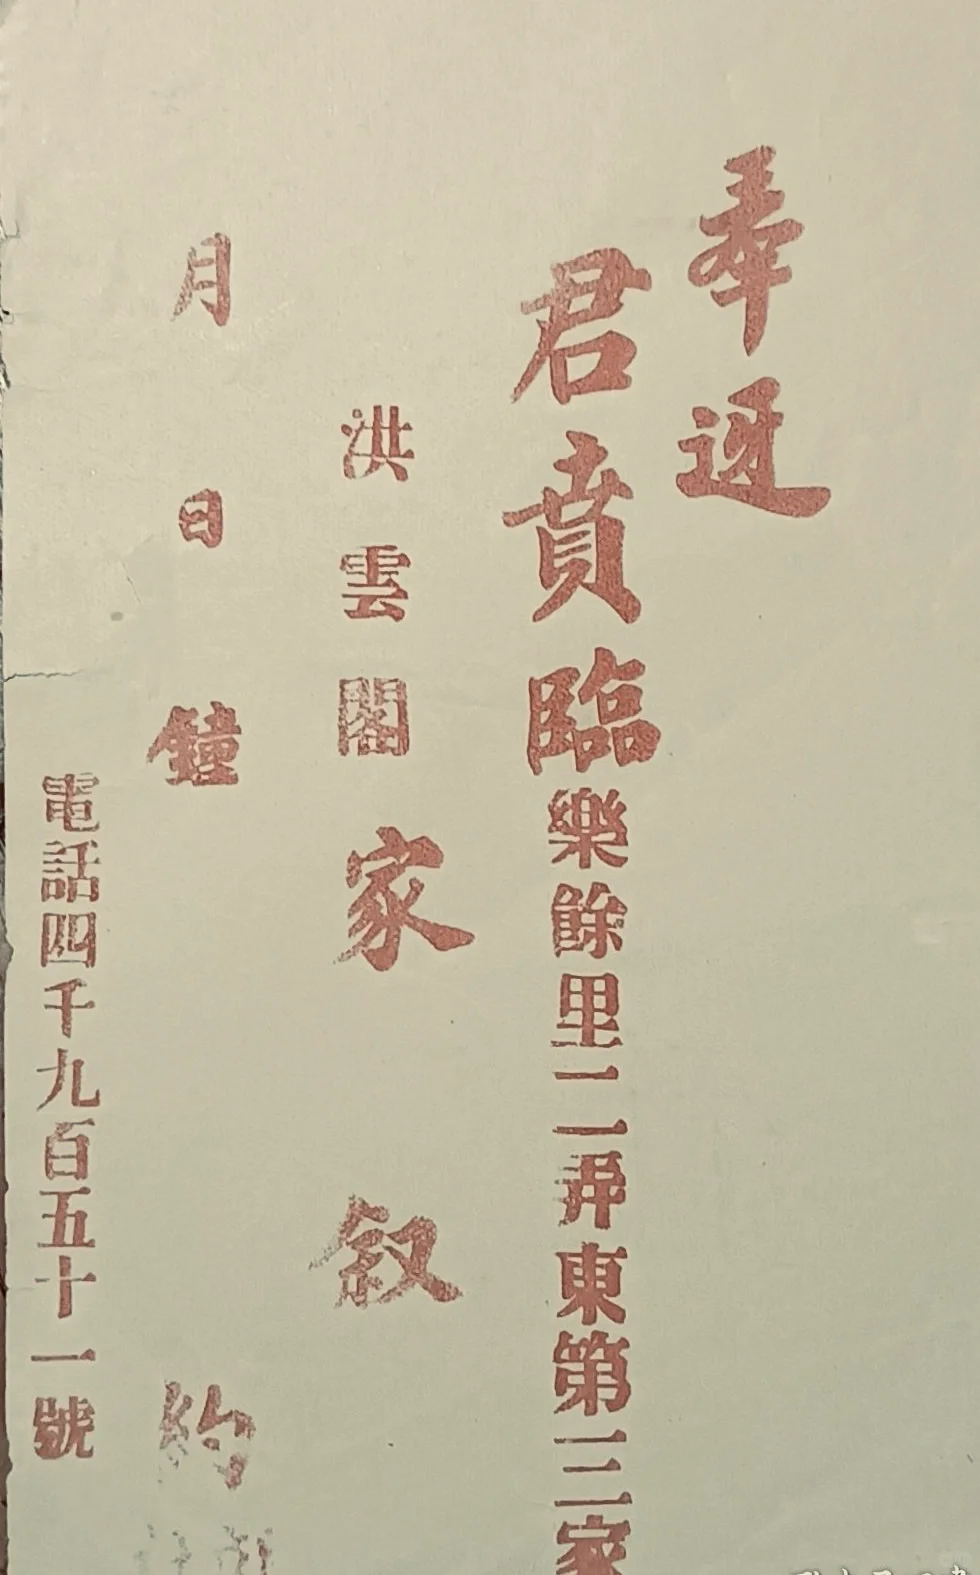 奉迓
君賁臨樂餘里二弄東第三家
洪雲閣家敘
月日鐘約
電話四千九百五十一號